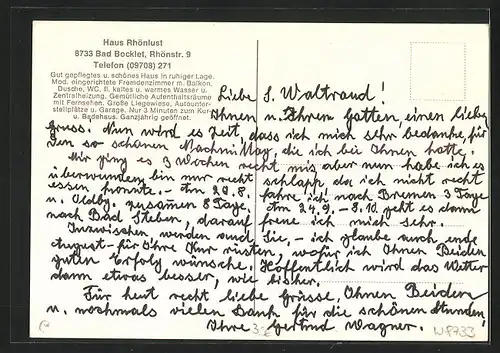 Haus Rhönlust
8733 Bad Bocklet, Rhönstr. 9
Telefon (09708) 271
Gut gepflegtes u. schönes Haus in ruhiger Lage.
Mod. eingerichtete Fremdenzimmer m. Balkon,
Dusche, WC, fl. kaltes u. warmes Wasser u.
Zentralheizung. Gemütliche Aufenthaltsräume
mit Fernsehen. Große Liegewiese, Autounter-
stellplätze u. Garage. Nur 3 Minuten zum Kur-
u. Badehaus. Ganzjährig geöffnet.
Liebe S. Waltraud!
Ihnen u. Ihrem Gatten einen lieben
Gruss. Nun wird es Zeit, dass ich mich sehr bedanke, für
den so schönen Nachmittag, die ich bei Ihnen hatte.
Mir ging es 3 Wochen recht mis, aber nun habe ich es
überwunden, bin nur recht schlapp, da ich nicht recht
essen konnte. - Am 20.8. fahre ich nach Bremen 3 Tage
u. Oldbg. zusamen 8 Tage. Am 24.9. - 8.10. geht es dann
nach Bad Steben, darauf freue ich mich sehr.
Inzwischen werden auch Sie, - ich glaube auch ende
August - für Ihre Kur rüsten, wofür ich Ihnen Beiden
guten Erfolg wünsche. Hoffentlich wird das Wetter
dann etwas besser, wie bisher.
Für heut recht liebe Grüsse, Ihnen Beiden
u. nochmals vielen Dank für die schönen Stunden,
Ihre Gertrud Wagner.
W8733